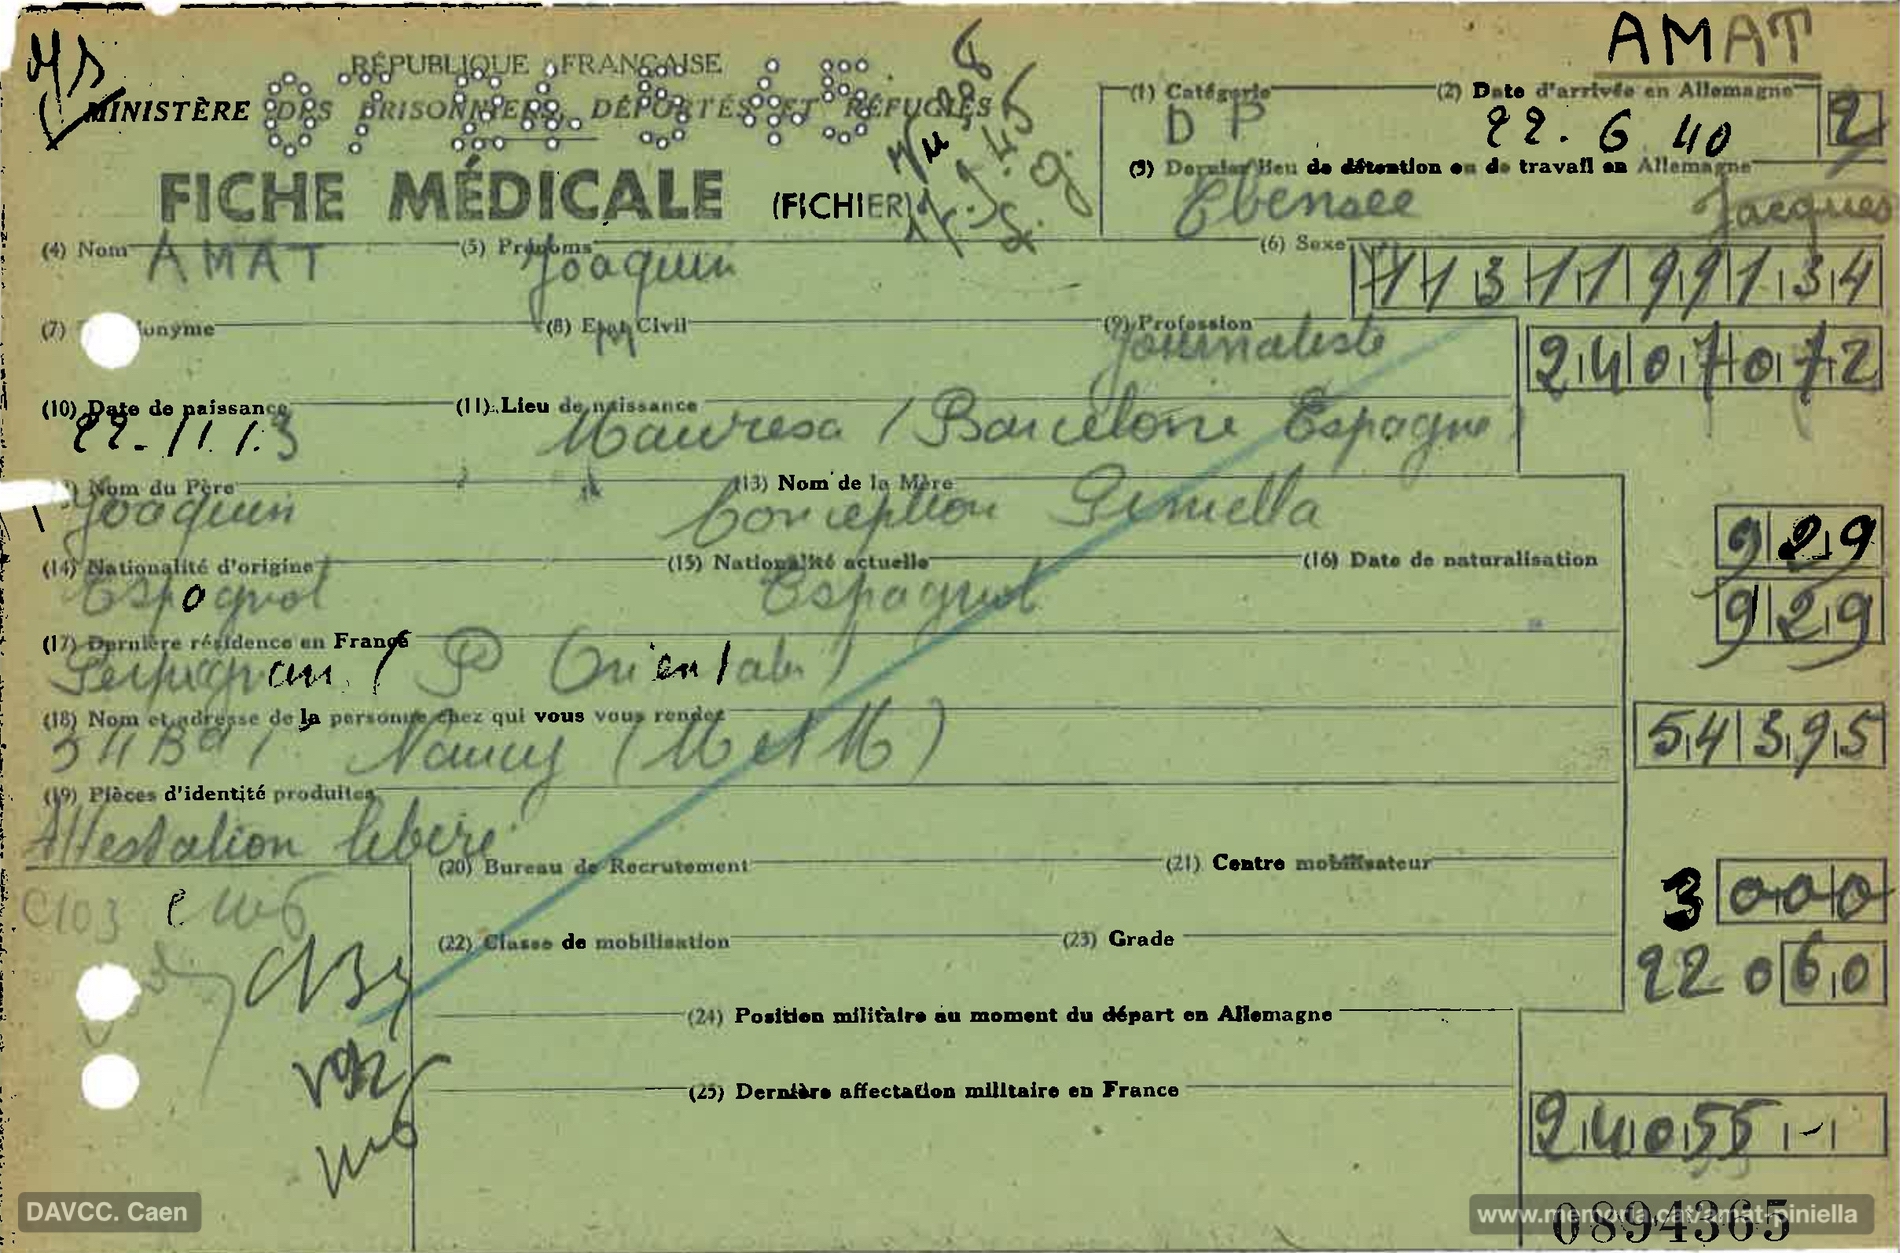 AMAT
RÉPUBLIQUE FRANÇAISE
MINISTÈRE DES PRISONNIERS, DÉPORTÉS ET RÉFUGIÉS
FICHE MÉDICALE (FICHIER)
(1) Catégorie
D P
(2) Date d'arrivée en Allemagne
22. 6 40
2
(3) Dernier lieu de détention ou de travail en Allemagne
Ebensee
Jacques
(4) Nom AMAT (5) Prénoms Joaquin (6) Sexe
1 1 3 1 1 1 9 9 1 3 4
(7) (8) Etat Civil (9) Profession
M Journaliste
2 4 0 7 0 7 2
(10) Date de naissance (11) Lieu de naissance
22-11.13 Mauresa / Barcelone Espagne
Nom du Père (13) Nom de la Mère
Joaquin Conception Piniella
9 2 9
(14) Nationalité d'origine (15) Nationalité actuelle (16) Date de naturalisation
Espagnol Espagnol
9 2 9
(17) Dernière résidence en France
Perpignan (P Orientales)
(18) Nom et adresse de la personne chez qui vous vous rendez
Nancy (M et M)
5 4 3 9 5
(19) Pièces d'identité produites
Attestation libéré
(20) Bureau de Recrutement (21) Centre mobilisateur
3 0 0 0
C103
(22) Classe de mobilisation (23) Grade
22 0 6 0
(24) Position militaire au moment du départ en Allemagne
(25) Dernière affectation militaire en France
2 4 0 5 5 -
DAVCC. Caen
www.memoria.cat/amat-piniella
0894365